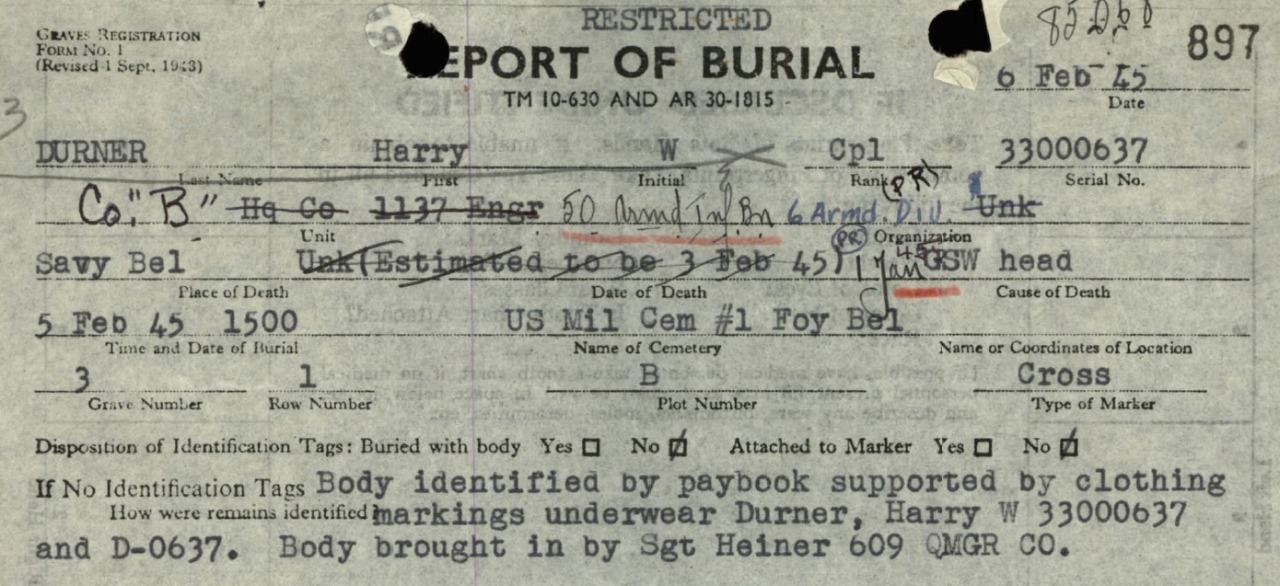 RESTRICTED
GRAVES REGISTRATION
FORM No. 1
(Revised 1 Sept. 1943)
897
EPORT OF BURIAL
TM 10-630 AND AR 30-1815
6 Feb 45
Date
3
DURNER Harry W Cpl 33000637
Last Name First Initial Rank Serial No.
(PR)
Co. "B" Hq Co 1137 Engr 50 Armd Inf Bn 6 Armd. Div. Unk
Unit Organization
Savy Bel Unk (Estimated to be 3 Feb 45) (PR) 1 Jan 45 GSW head
Place of Death Date of Death Cause of Death
5 Feb 45 1500 US Mil Cem #1 Foy Bel
Time and Date of Burial Name of Cemetery Name or Coordinates of Location
3 1 B Cross
Grave Number Row Number Plot Number Type of Marker
Disposition of Identification Tags: Buried with body Yes ☐ No ☑ Attached to Marker Yes ☐ No ☑
If No Identification Tags Body identified by paybook supported by clothing
How were remains identified markings underwear Durner, Harry W 33000637
and D-0637. Body brought in by Sgt Heiner 609 QMGR CO.